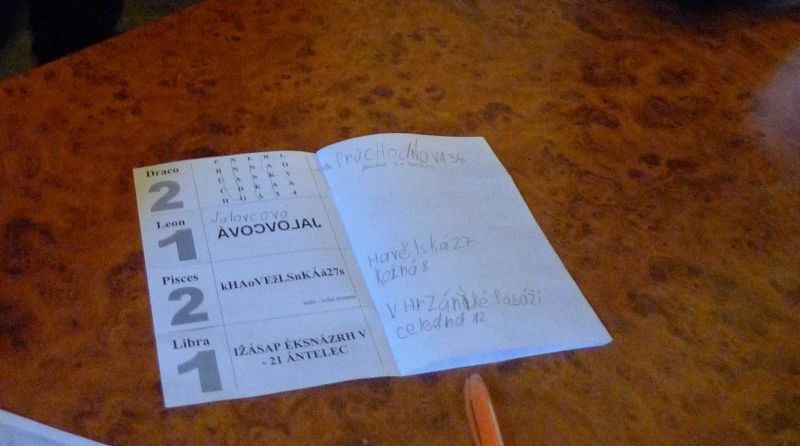 Draco
2
Leon
1
Jalovcová
JALOVCOVÁ
Pisces
2
kHAoVEžLSnKÁá27s
Libra
1
IŽÁSAP ÉKSNÁZRH V
- 21 ÁNTELEC
PrŮCHODNOVA 34
Havelská 27
Kožná 8
V HrZánské Pasáži
celetná 12